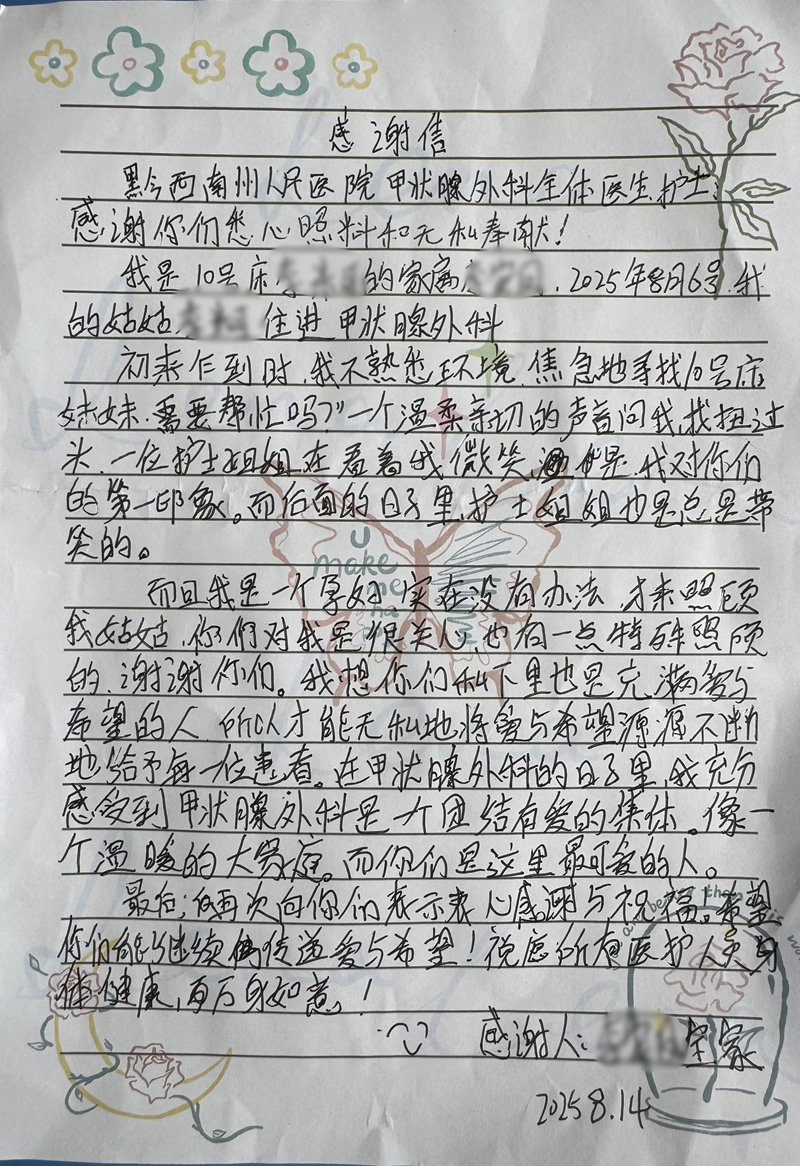 感谢信
黔西南州人民医院甲状腺外科全体医生、护士:
感谢你们悉心照料和无私奉献!
我是10号床 的家属 , 2025年8月6号,我
的姑姑 住进甲状腺外科
初来乍到时,我不熟悉环境,焦急地寻找10号床
妹妹,需要帮忙吗?”一个温柔亲切的声音问我,我扭过
头,一位护士姐姐在看着我微笑, 是我对你们
的第一印象。而后面的日子里,护士姐姐也是总是带
笑的。
而且我是一个孕妇,实在没有办法才来照顾
我姑姑,你们对我是很关心,也有一点特殊照顾
的,谢谢你们。我想你们私下里也是充满爱与
希望的人,所以才能无私地将爱与希望源源不断
地给予每一位患者。在甲状腺外科的日子里,我充分
感受到甲状腺外科是一个团结有爱的集体。像一
个温暖的大家庭。而你们是这里最可爱的人。
最后,再次向你们表示衷心感谢与祝福!希望
你们能继续传递爱与希望!祝愿所有医护人员身
体健康,万事如意!
感谢人: 全家
2025.8.14
U
make
me
ha